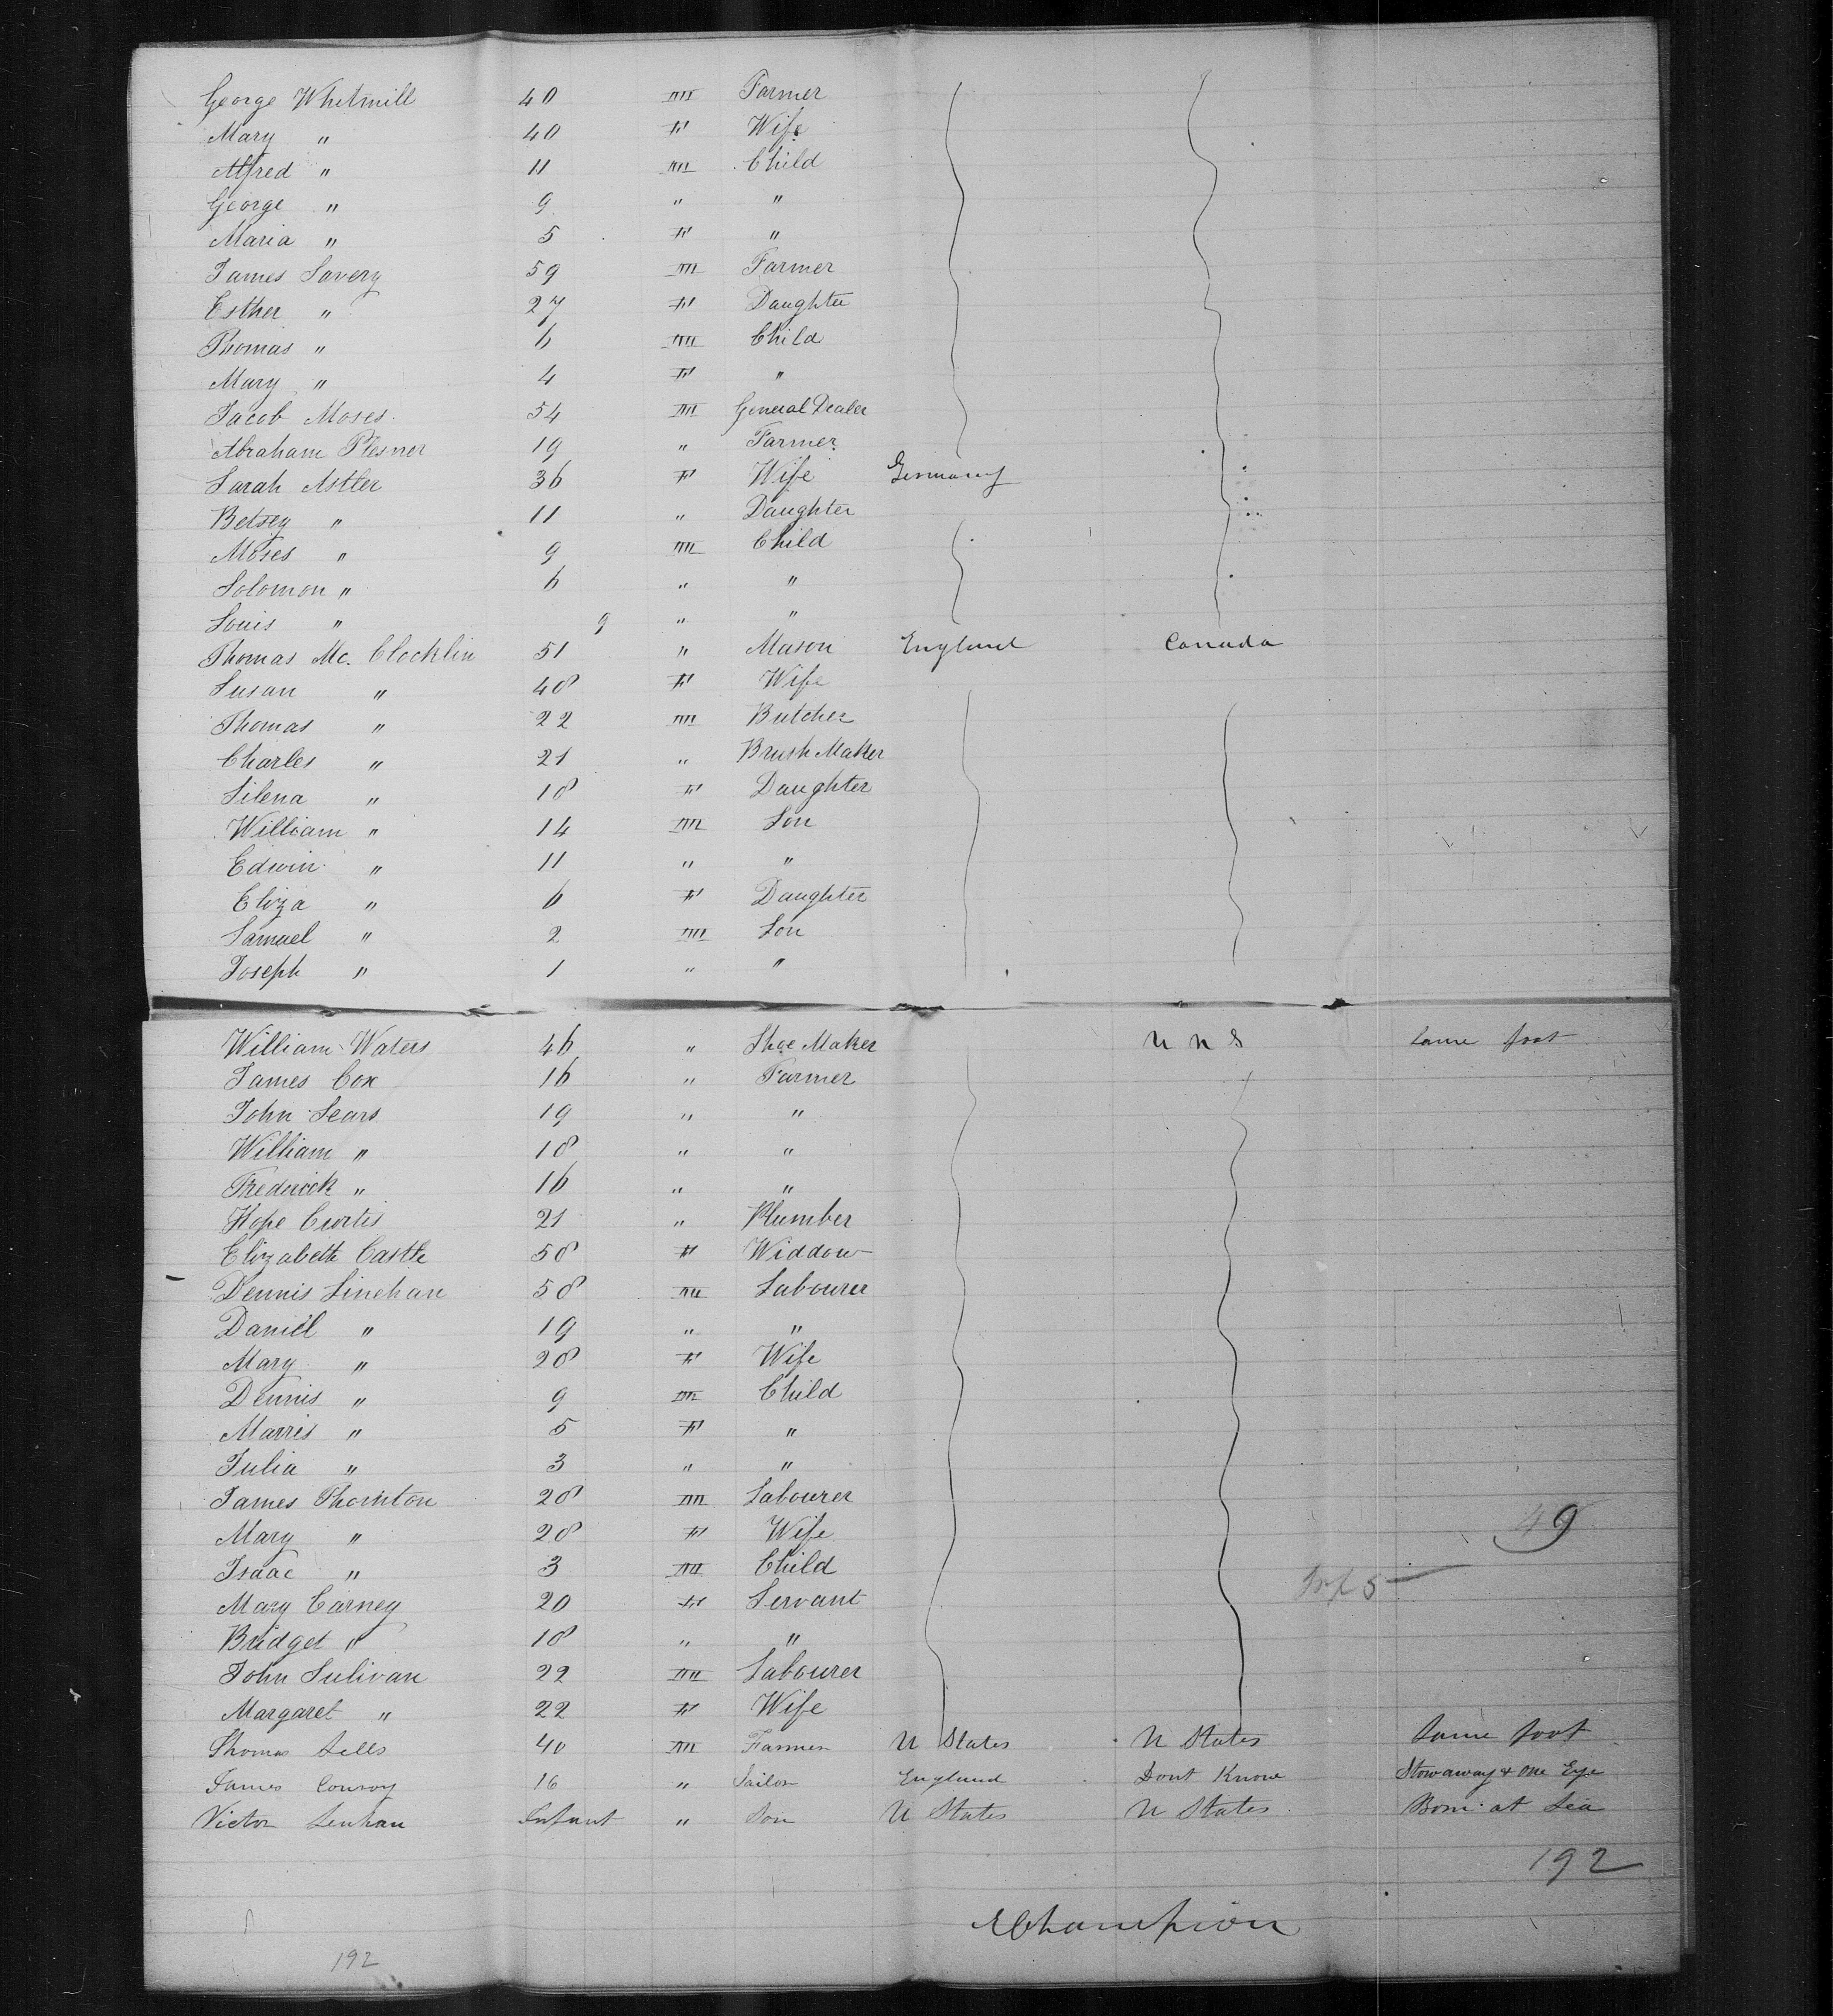 George Whitmill 40 m Farmer
Mary " 40 F Wife
Alfred " 11 m Child
George " 9 " "
Maria " 5 F "
James Savery 59 m Farmer
Esther " 27 F Daughter
Thomas " 6 m Child
Mary " 4 F "
Jacob Moses 54 m General Dealer
Abraham Plesner 19 " Farmer
Sarah Astler 36 F Wife Germany
Betsey " 11 " Daughter
Moses " 9 m Child
Solomon " 6 " "
Louis " 9 " "
Thomas Mc. Clocklin 51 " Mason England Canada
Susan " 48 F Wife
Thomas " 22 m Butcher
Charles " 21 " Brush Maker
Silena " 18 F Daughter
William " 14 m Son
Edwin " 11 " "
Eliza " 6 F Daughter
Samuel " 2 m Son
Joseph " 1 " "
William Waters 46 " Shoe Maker Lame foot
James Cox 16 " Farmer
John Sears 19 " "
William " 18 " "
Frederick " 16 " "
Hope Curtis 21 " Plumber
Elizabeth Castle 58 F Widdow
Dennis Linehan 58 m Labourer
Daniel " 19 " "
Mary " 28 F Wife
Dennis " 9 m Child
Marris " 5 F "
Julia " 3 " "
James Thornton 28 m Labourer
Mary " 28 F Wife 49
Isaac " 3 m Child
Mary Carney 20 F Servant
Bridget " 18 " "
John Sulivan 22 m Labourer
Margaret " 22 F Wife
Thomas Sells 40 m Farmer U States U States Lame foot
James Conroy 16 " Sailor England Dont Know Stowaway & One Eye
Victor Lenhan Infant " Son U States U States Born at Sea
192
E Champion
192